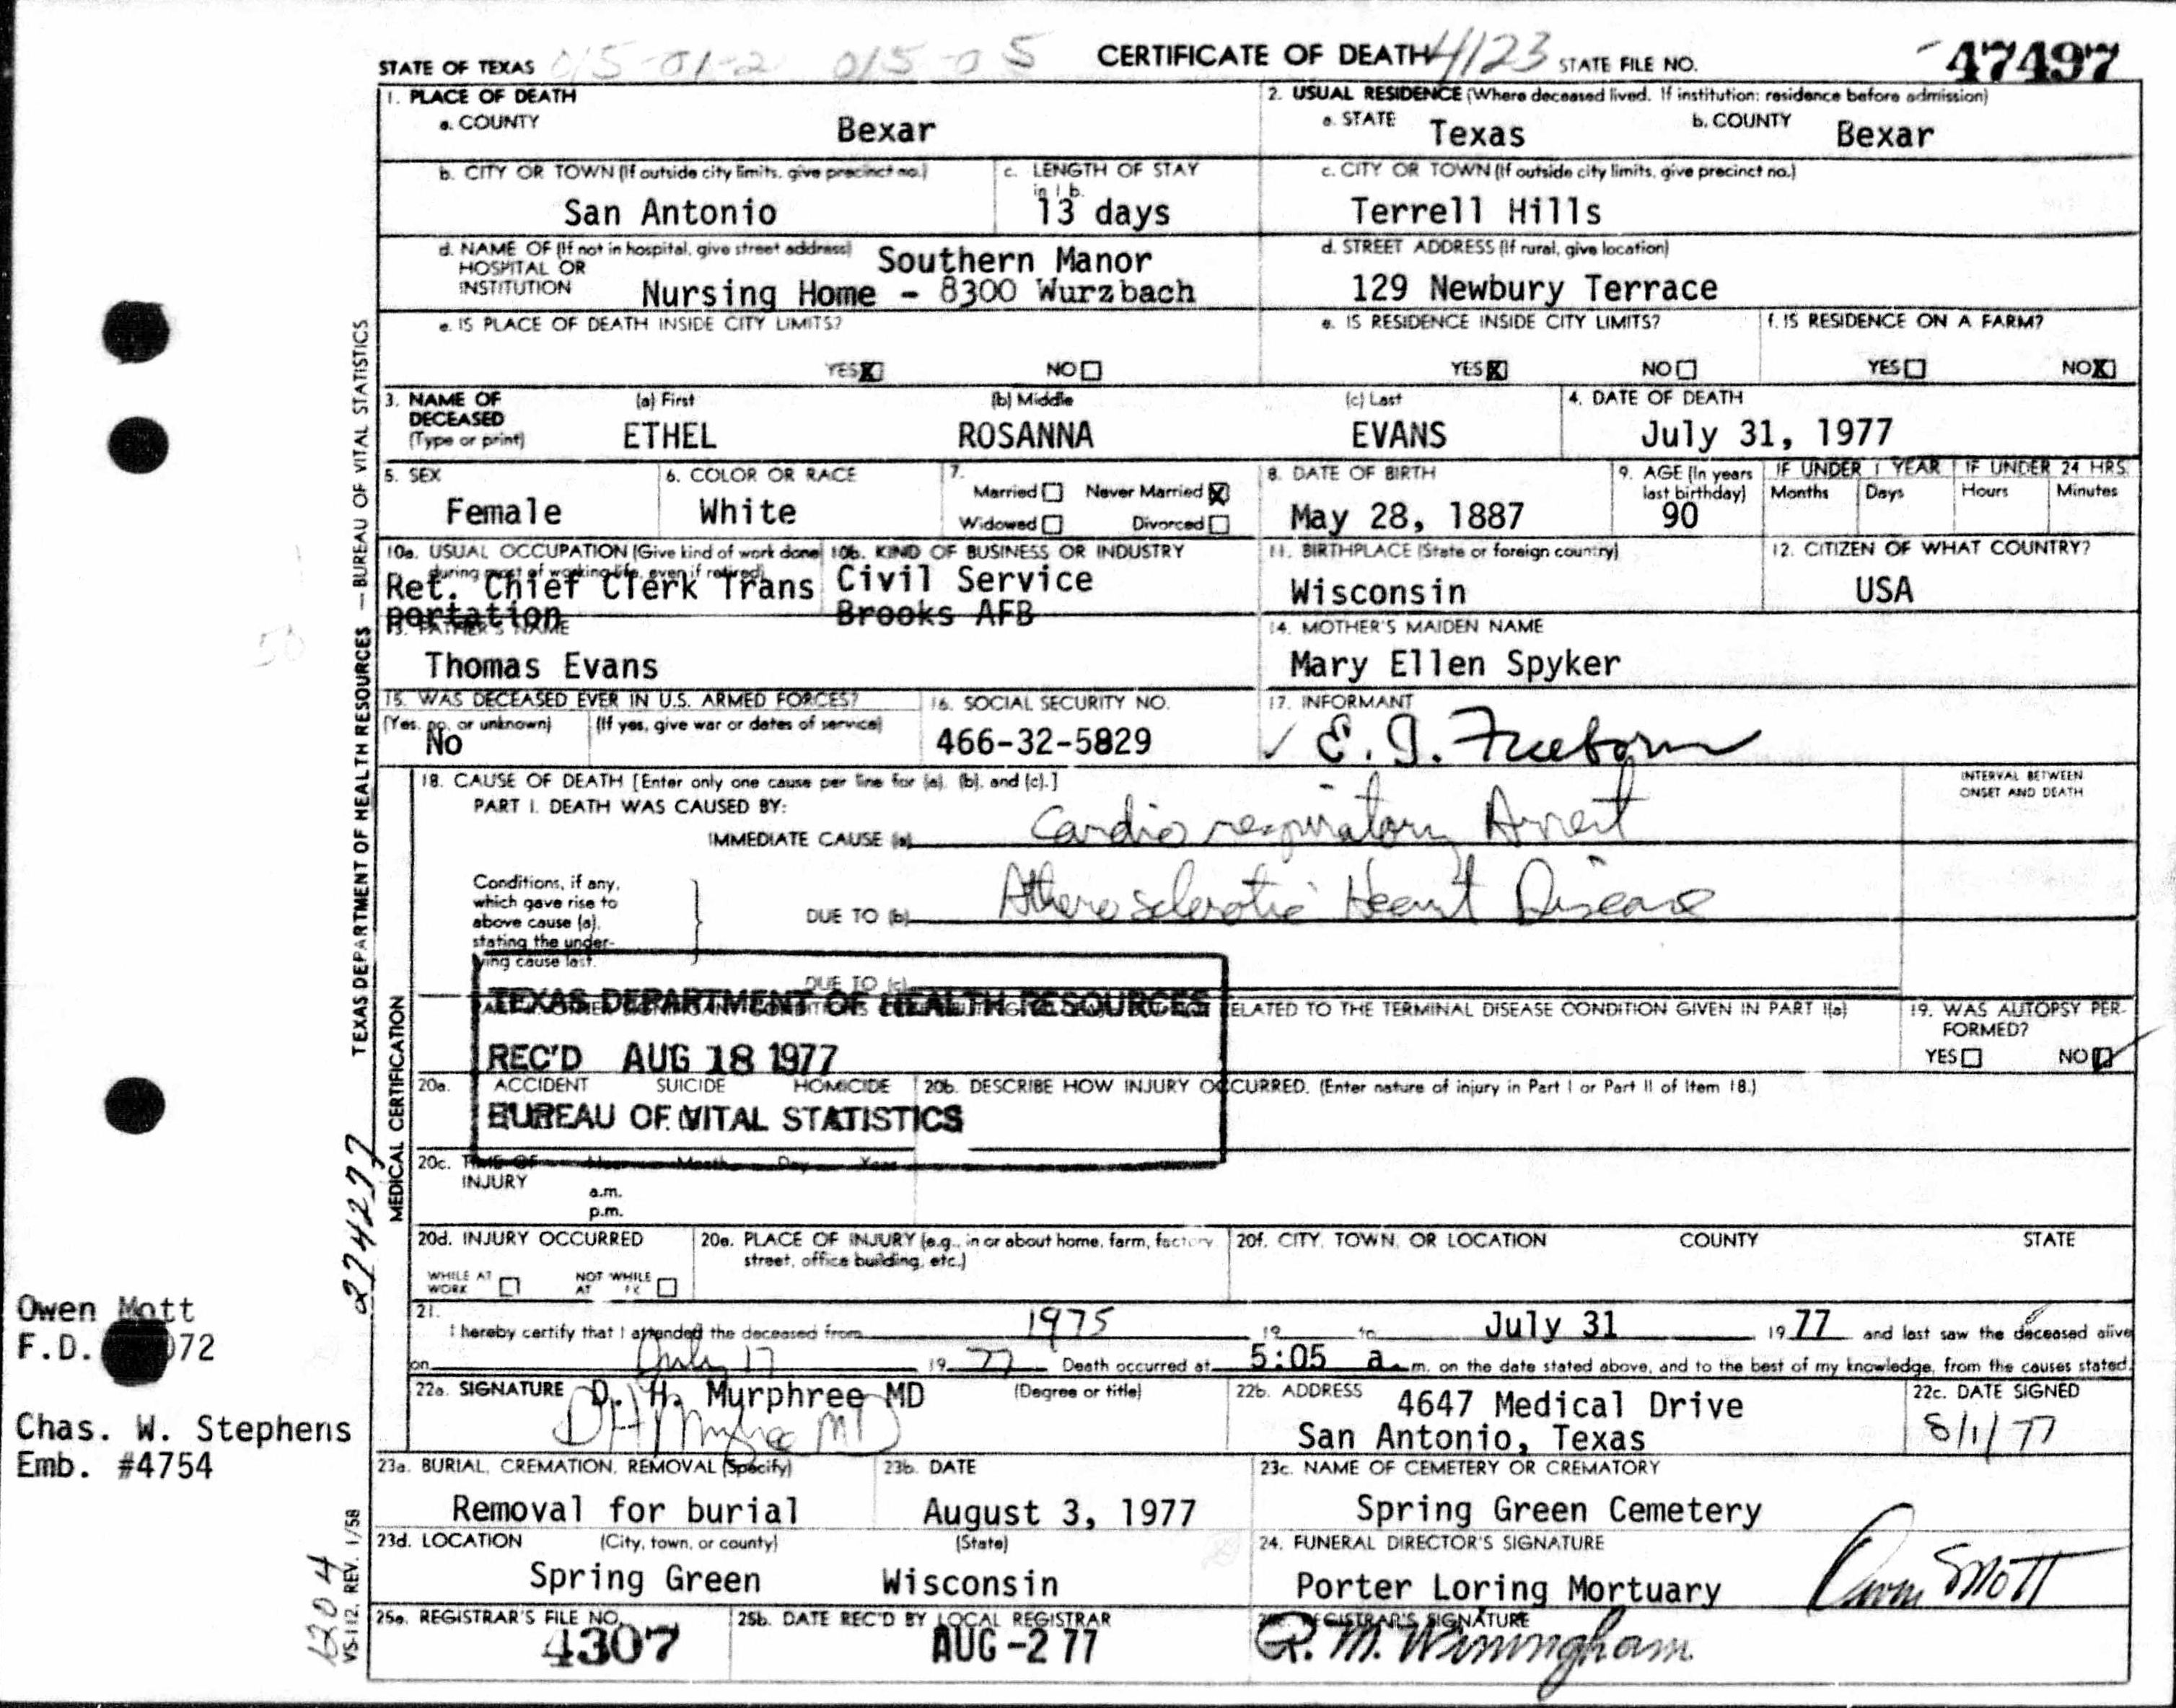 STATE OF TEXAS 015-01-2 015-05 CERTIFICATE OF DEATH 4123 STATE FILE NO. 47497
1. PLACE OF DEATH
a. COUNTY Bexar
2. USUAL RESIDENCE (Where deceased lived. If institution: residence before admission)
a. STATE Texas b. COUNTY Bexar
b. CITY OR TOWN (If outside city limits, give precinct no.) San Antonio
c. LENGTH OF STAY in 1 b. 13 days
c. CITY OR TOWN (If outside city limits, give precinct no.)
Terrell Hills
d. NAME OF (If not in hospital, give street address) HOSPITAL OR INSTITUTION
Southern Manor
Nursing Home - 8300 Wurzbach
d. STREET ADDRESS (If rural, give location)
129 Newbury Terrace
e. IS PLACE OF DEATH INSIDE CITY LIMITS?
YES X NO
e. IS RESIDENCE INSIDE CITY LIMITS?
YES X NO
f. IS RESIDENCE ON A FARM?
YES NO X
3. NAME OF DECEASED (Type or print)
(a) First (b) Middle (c) Last
ETHEL ROSANNA EVANS
4. DATE OF DEATH
July 31, 1977
5. SEX
Female
6. COLOR OR RACE
White
7.
Married Never Married X
Widowed Divorced
8. DATE OF BIRTH
May 28, 1887
9. AGE (In years last birthday)
90
IF UNDER 1 YEAR IF UNDER 24 HRS.
Months Days Hours Minutes
10a. USUAL OCCUPATION (Give kind of work done during most of working life, even if retired)
Ret. Chief Clerk Trans
portation
10b. KIND OF BUSINESS OR INDUSTRY
Civil Service
Brooks AFB
11. BIRTHPLACE (State or foreign country)
Wisconsin
12. CITIZEN OF WHAT COUNTRY?
USA
13. FATHER'S NAME
Thomas Evans
14. MOTHER'S MAIDEN NAME
Mary Ellen Spyker
15. WAS DECEASED EVER IN U.S. ARMED FORCES?
(Yes, no, or unknown) (If yes, give war or dates of service)
No
16. SOCIAL SECURITY NO.
466-32-5829
17. INFORMANT
E. J. Freeborn
18. CAUSE OF DEATH [Enter only one cause per line for (a), (b), and (c).]
INTERVAL BETWEEN
ONSET AND DEATH
PART I. DEATH WAS CAUSED BY:
IMMEDIATE CAUSE (a) Cardiorespiratory Arrest
Conditions, if any,
which gave rise to
above cause (a),
stating the under-
lying cause last.
DUE TO (b) Atherosclerotic Heart Disease
DUE TO (c)
RELATED TO THE TERMINAL DISEASE CONDITION GIVEN IN PART I(a)
TEXAS DEPARTMENT OF HEALTH RESOURCES
REC'D AUG 18 1977
BUREAU OF VITAL STATISTICS
19. WAS AUTOPSY PER-
FORMED?
YES NO
20a. ACCIDENT SUICIDE HOMICIDE
20b. DESCRIBE HOW INJURY OCCURRED. (Enter nature of injury in Part I or Part II of Item 18.)
20c. TIME OF INJURY
Hour Month Day Year
a.m.
p.m.
20d. INJURY OCCURRED
WHILE AT WORK NOT WHILE AT
20e. PLACE OF INJURY (e.g., in or about home, farm, factory
street, office building, etc.)
20f. CITY, TOWN, OR LOCATION COUNTY STATE
21.
I hereby certify that I attended the deceased from 1975 19 to July 31 19 77 and last saw the deceased alive
on July 17 19 77 Death occurred at 5:05 a. m. on the date stated above, and to the best of my knowledge, from the causes stated.
22a. SIGNATURE (Degree or title)
D. H. Murphree MD
DH Murphree MD
22b. ADDRESS
4647 Medical Drive
San Antonio, Texas
22c. DATE SIGNED
8/1/77
23a. BURIAL, CREMATION, REMOVAL (Specify)
Removal for burial
23b. DATE
August 3, 1977
23c. NAME OF CEMETERY OR CREMATORY
Spring Green Cemetery
23d. LOCATION (City, town, or county) (State)
Spring Green Wisconsin
24. FUNERAL DIRECTOR'S SIGNATURE
Porter Loring Mortuary Owen Mott
25a. REGISTRAR'S FILE NO.
4307
25b. DATE REC'D BY LOCAL REGISTRAR
AUG -2 77
REGISTRAR'S SIGNATURE
TEXAS DEPARTMENT OF HEALTH RESOURCES — BUREAU OF VITAL STATISTICS
MEDICAL CERTIFICATION
Owen Mott
F.D. 072
Chas. W. Stephens
Emb. #4754
VS-112, REV. 1/58
1204